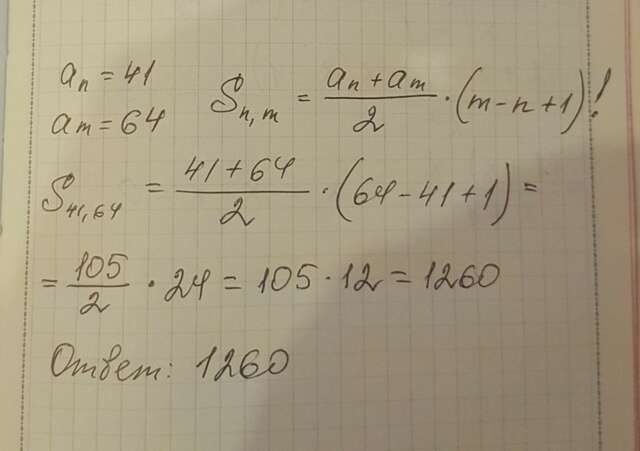 aₙ = 41
aₘ = 64
Sₙ,ₘ = (aₙ + aₘ)/2 · (m - n + 1)!
S₄₁,₆₄ = (41 + 64)/2 · (64 - 41 + 1) =
= 105/2 · 24 = 105 · 12 = 1260
Ответ: 1260